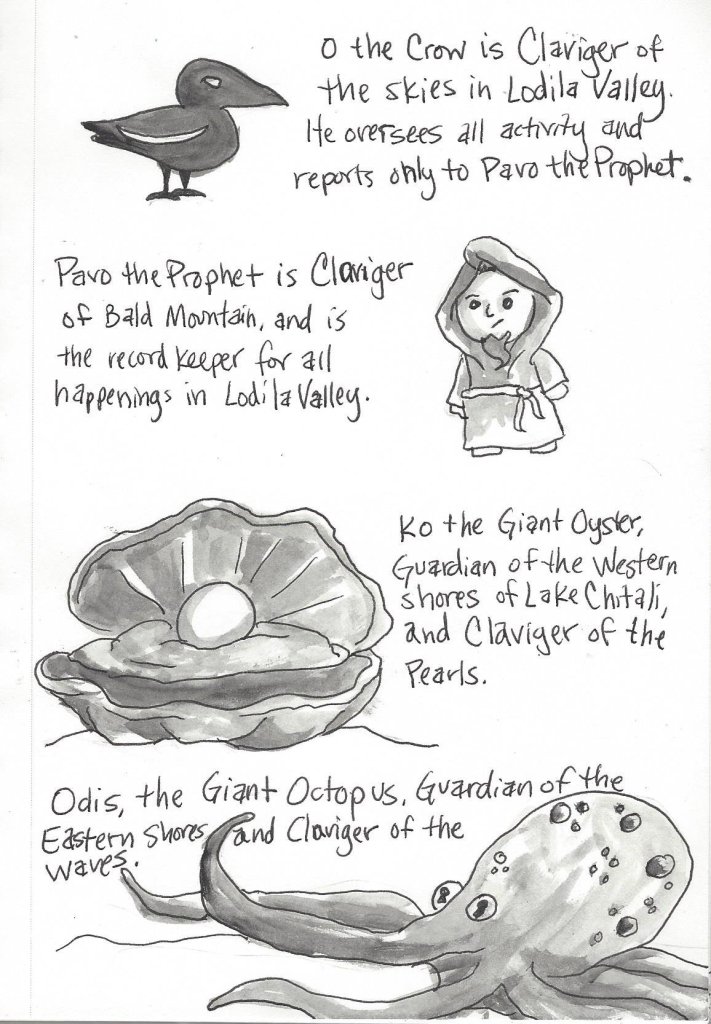 O the Crow is Claviger of
the skies in Lodila Valley.
He oversees all activity and
reports only to Pavo the Prophet.
Pavo the Prophet is Claviger
of Bald Mountain, and is
the record keeper for all
happenings in Lodila Valley.
Ko the Giant Oyster,
Guardian of the Western
shores of Lake Chitali,
and Claviger of the
Pearls.
Odis, the Giant Octopus, Guardian of the
Eastern Shores and Claviger of the
waves.